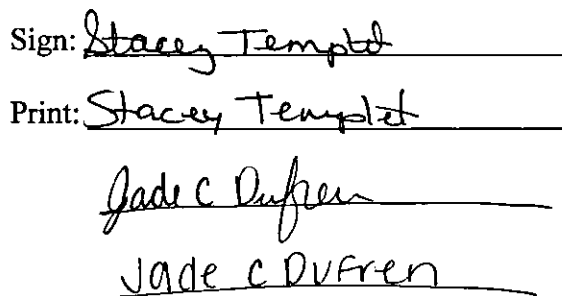 Sign: Stacey Templet
Print: Stacey Templet
Jade C Dufren
Jade C Dufren